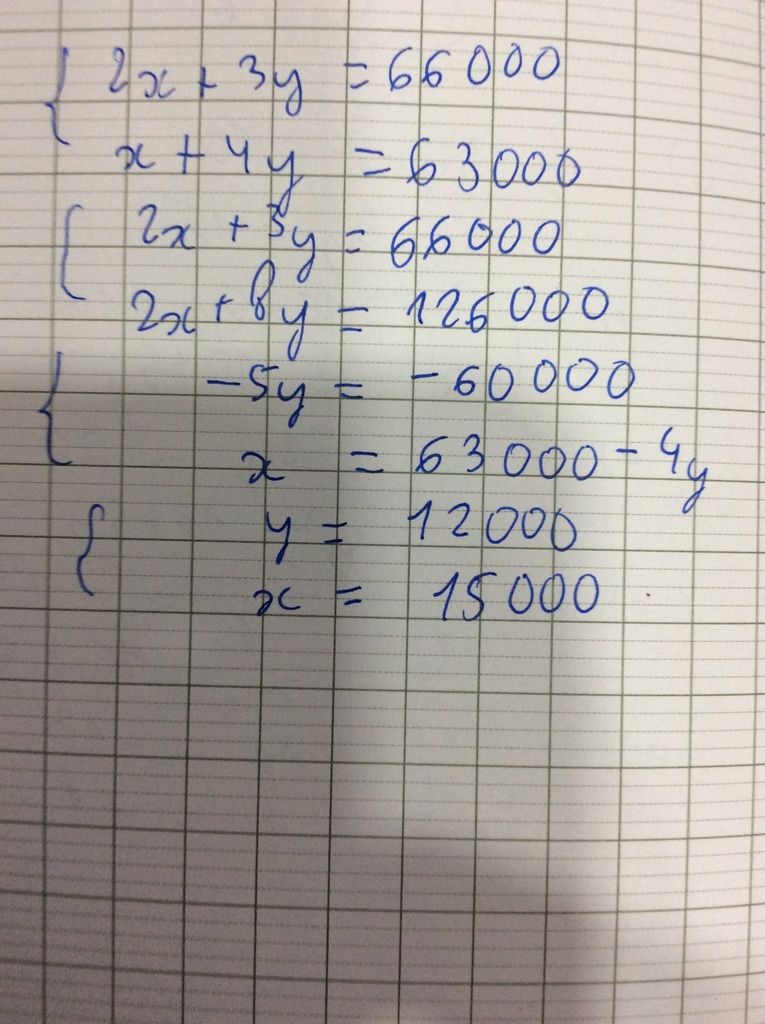 { 2x + 3y = 66000
x + 4y = 63000
{ 2x + 3y = 66000
2x + 8y = 126000
{ -5y = -60000
x = 63000 - 4y
{ y = 12000
x = 15000